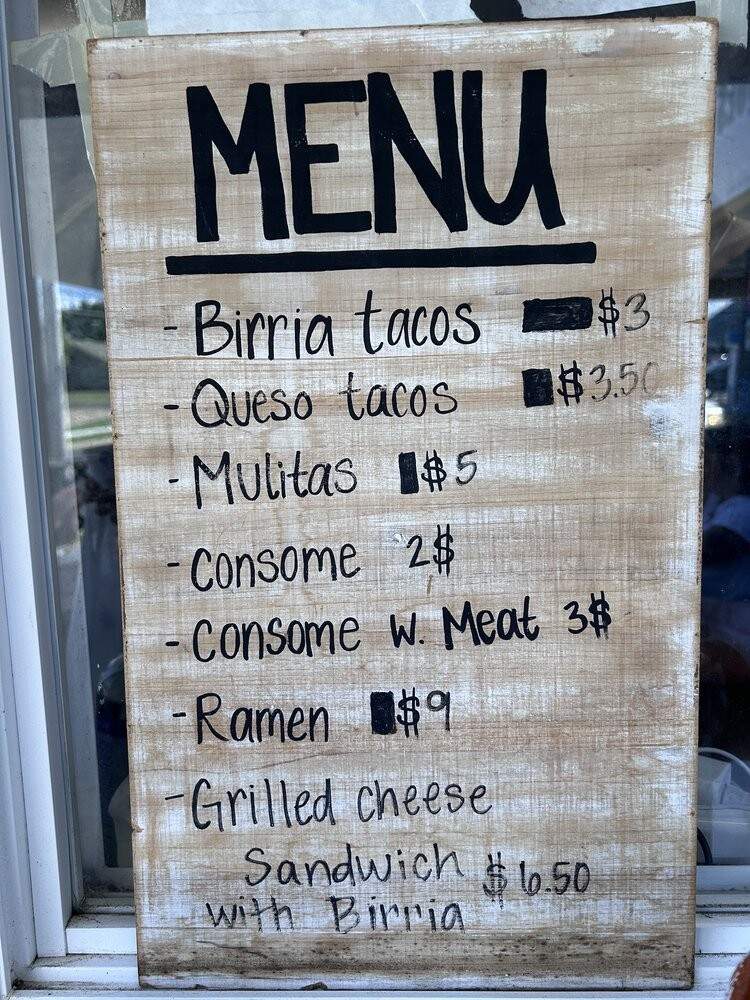 MENU
- Birria tacos $3
- Queso tacos $3.50
- Mulitas $5
- Consome 2$
- Consome w. Meat 3$
- Ramen $9
- Grilled cheese
Sandwich $6.50
with Birria